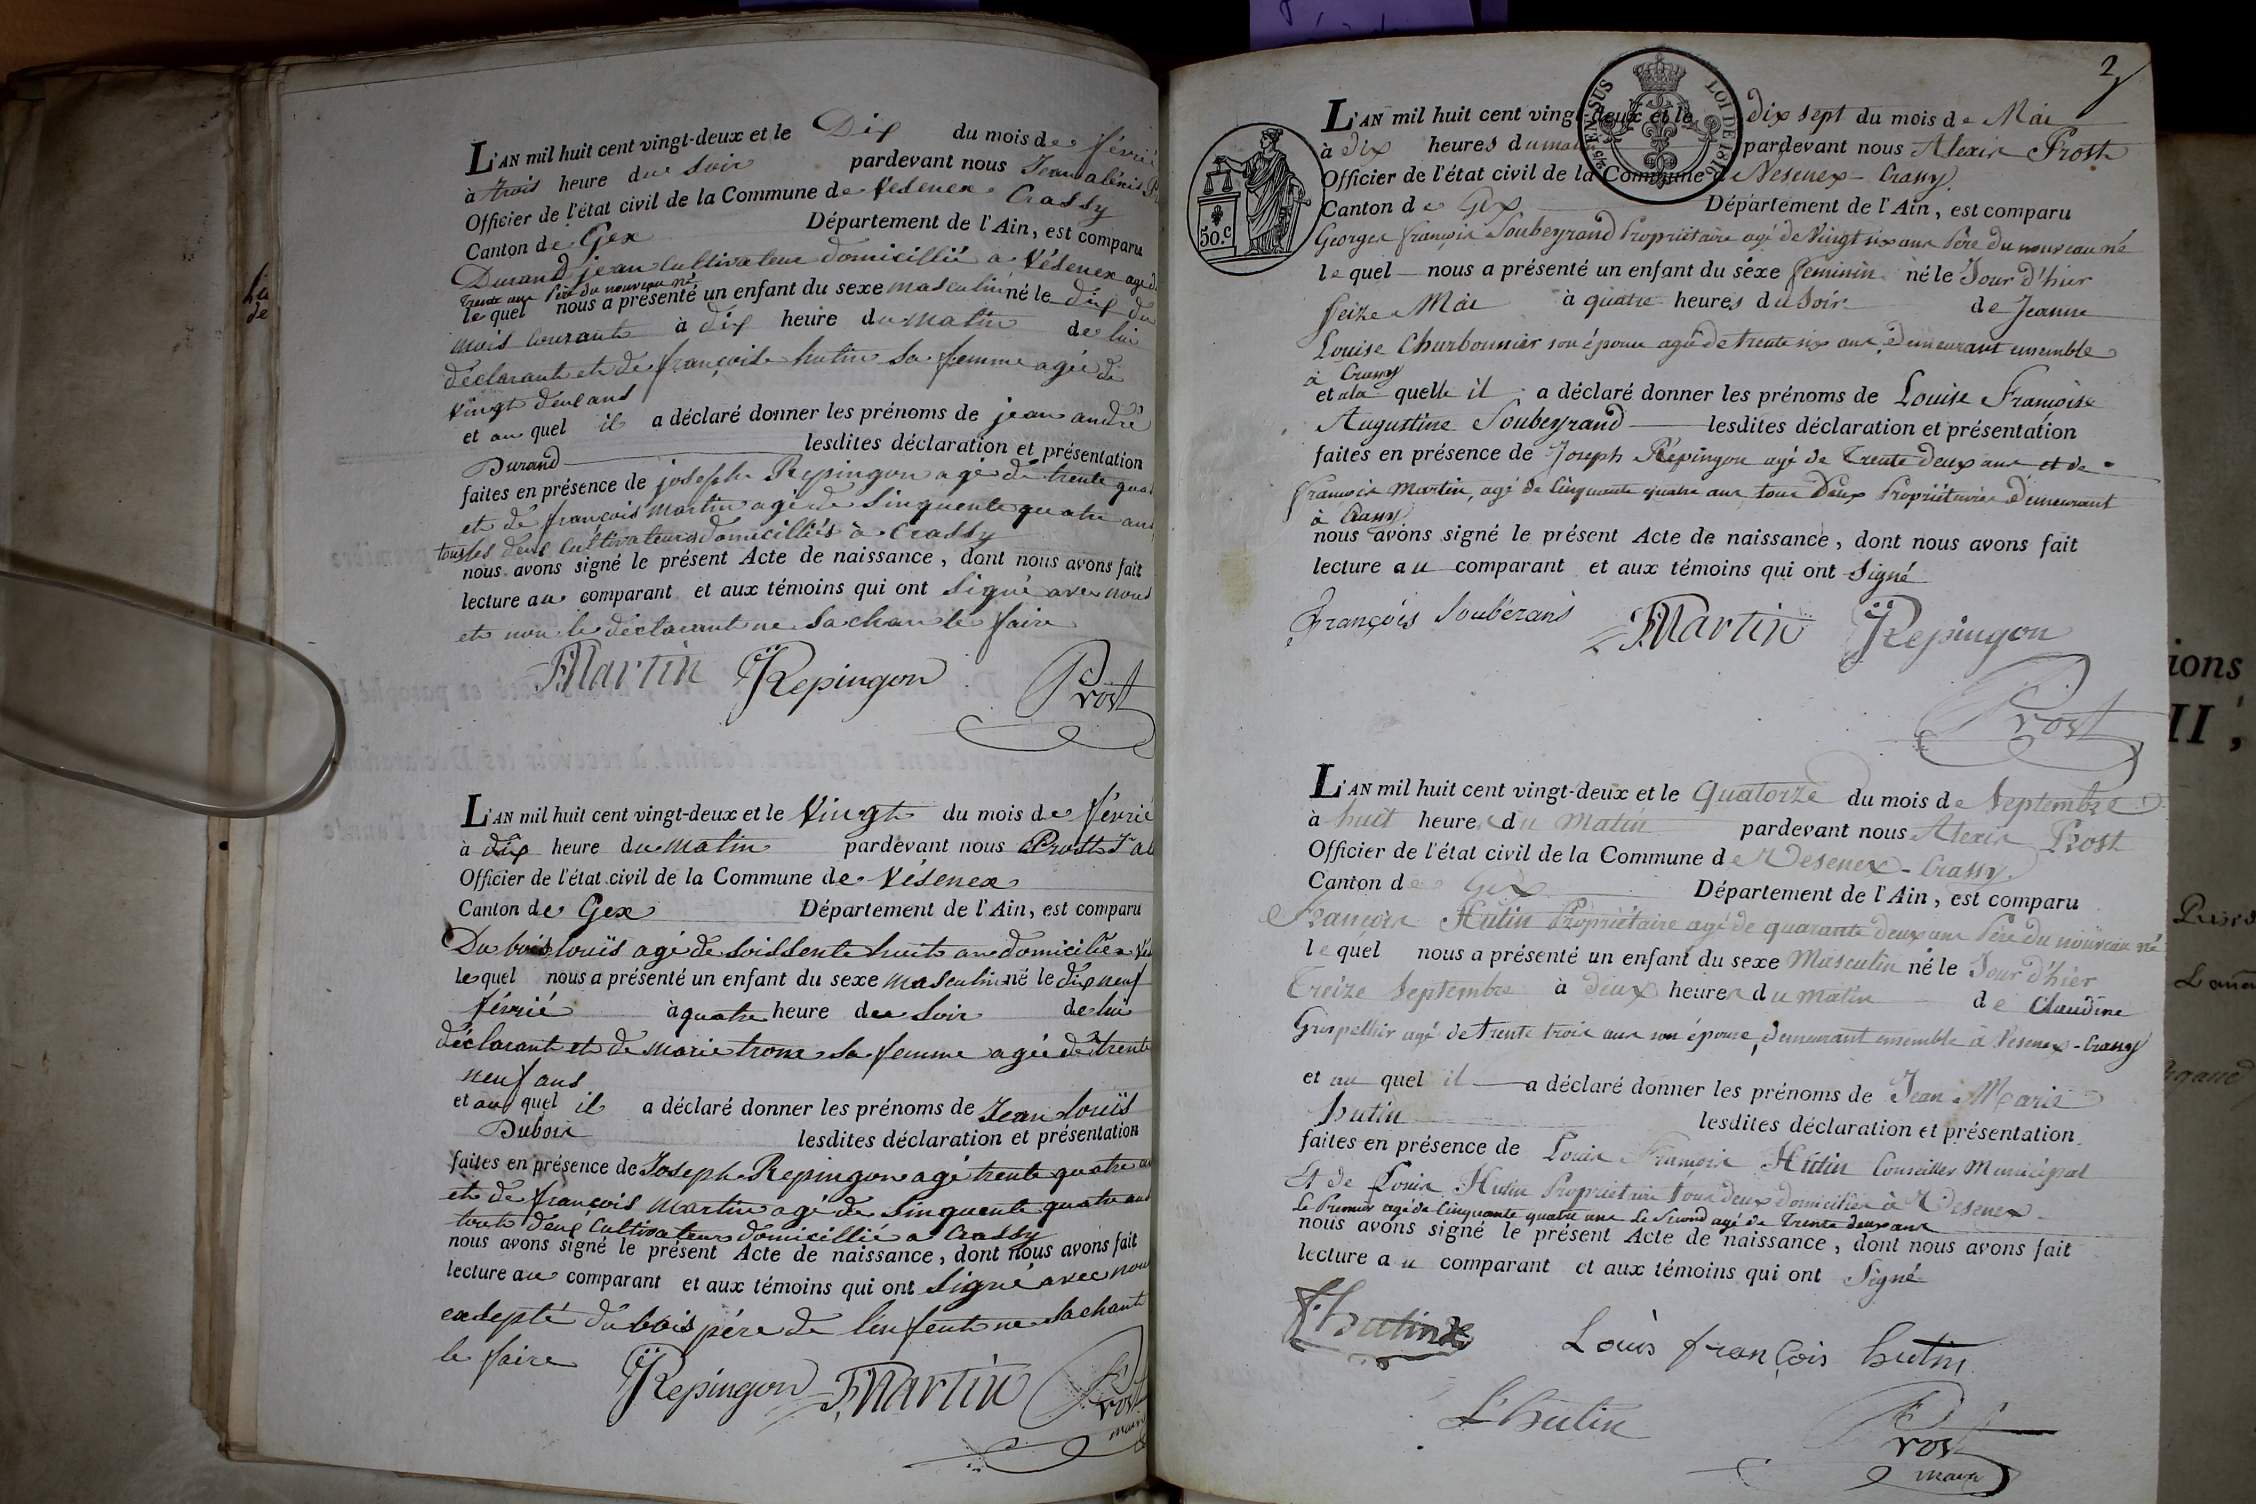 L'AN mil huit cent vingt-deux et le Dix du mois de févrié
à trois heure du soir pardevant nous Jean aléxis
Officier de l'état civil de la Commune de Vésenex Crassy
Canton de Gex Département de l'Ain, est comparu
Durand jean Cultivateur domicillié a Vésenex agé de
trente ans Père du nouveau né
le quel nous a présenté un enfant du sexe masculin né le dix du
mois courant à dix heure du matin de lui
déclarant et de françoise hutin sa femme agée de
vingt deux ans
et au quel il a déclaré donner les prénoms de jean andré
Durand lesdites déclaration et présentation
faites en présence de joseph Repingon agé de trente quat
et de françois martin agé de Sinquente quatre ans
tous les deux Cultivateurs domicilliés à Crassy
nous avons signé le présent Acte de naissance, dont nous avons fait
lecture au comparant et aux témoins qui ont Signé avec nous
et non le déclarant ne Sachan le faire
FMartin JRepingon Prost
L'AN mil huit cent vingt-deux et le Vingt du mois de févrié
à dix heure du matin pardevant nous Prost J al
Officier de l'état civil de la Commune de Vésenex
Canton de Gex Département de l'Ain, est comparu
Du bois louïs agé de soissente huit ans domicilié a Vés
le quel nous a présenté un enfant du sexe masculin né le dix neuf
févrié à quatre heure du Soir de lui
déclarant et de marie trone sa femme agée de trente
neuf ans
et au quel il a déclaré donner les prénoms de Jean Louïs
Dubois lesdites déclaration et présentation
faites en présence de Joseph Repingon agé trente quatre an
et de françois martin agé de Sinquente quatre ans
tout deux Cultivateurs domicillié a Crassy
nous avons signé le présent Acte de naissance, dont nous avons fait
lecture au comparant et aux témoins qui ont Signé avec nous
exsepté du bois père de l'enfent ne Sachant
le faire
JRepingon FMartin Prost
maire
2
SUS LOI DE 181
50.c
L'AN mil huit cent vingt-deux et le dix sept du mois de Mai
à dix heures du matin pardevant nous Alexis Prost
Officier de l'état civil de la Commune de Vesenex-Crassy.
Canton de Gex Département de l'Ain, est comparu
Georges françois Soubeyrand Propriétaire agé de Vingt six ans Père du nouveau né
le quel nous a présenté un enfant du séxe feminin né le Jour d'hier
Seize Mai à quatre heures du Soir de Jeanne
Louise Charbonnier son épouse agé de trente six ans, demeurant ensemble
à Crassy
et a la quelle il a déclaré donner les prénoms de Louise Françoise
Augustine Soubeyrand lesdites déclaration et présentation
faites en présence de Joseph Répingon agé de Trente Deux ans et de
François Martin, agé de Cinquante quatre ans, tous Deux Propriétaires Demeurant
à Crassy.
nous avons signé le présent Acte de naissance, dont nous avons fait
lecture au comparant et aux témoins qui ont Signé
François Soubérand FMartin JRepingon
Prost
L'AN mil huit cent vingt-deux et le Quatorze du mois de Septembre
à huit heures du Matin pardevant nous Alexis Prost
Officier de l'état civil de la Commune de Vesenex-Crassy.
Canton de Gex Département de l'Ain, est comparu
François Hutin Propriétaire agé de quarante deux ans Père du nouveau né
le quel nous a présenté un enfant du sexe Masculin né le Jour d'hier
Treize Septembre à deux heures du matin de Claudine
Grospellier agé de trente trois ans son épouse, demeurant ensemble à Vesenex-Crassy
et au quel il a déclaré donner les prénoms de Jean Marie
hutin lesdites déclaration et présentation
faites en présence de Louis François Hutin Conseiller Municipal
Et de Louis Hutin Propriétaire Tous deux domiciliés à Vesenex
Le Premier agé de Cinquante quatre ans Le Second agé de Trente deux ans
nous avons signé le présent Acte de naissance, dont nous avons fait
lecture au comparant et aux témoins qui ont Signé
f. hutin Louis françois hutin
L hutin Prost
maire
ions
II,